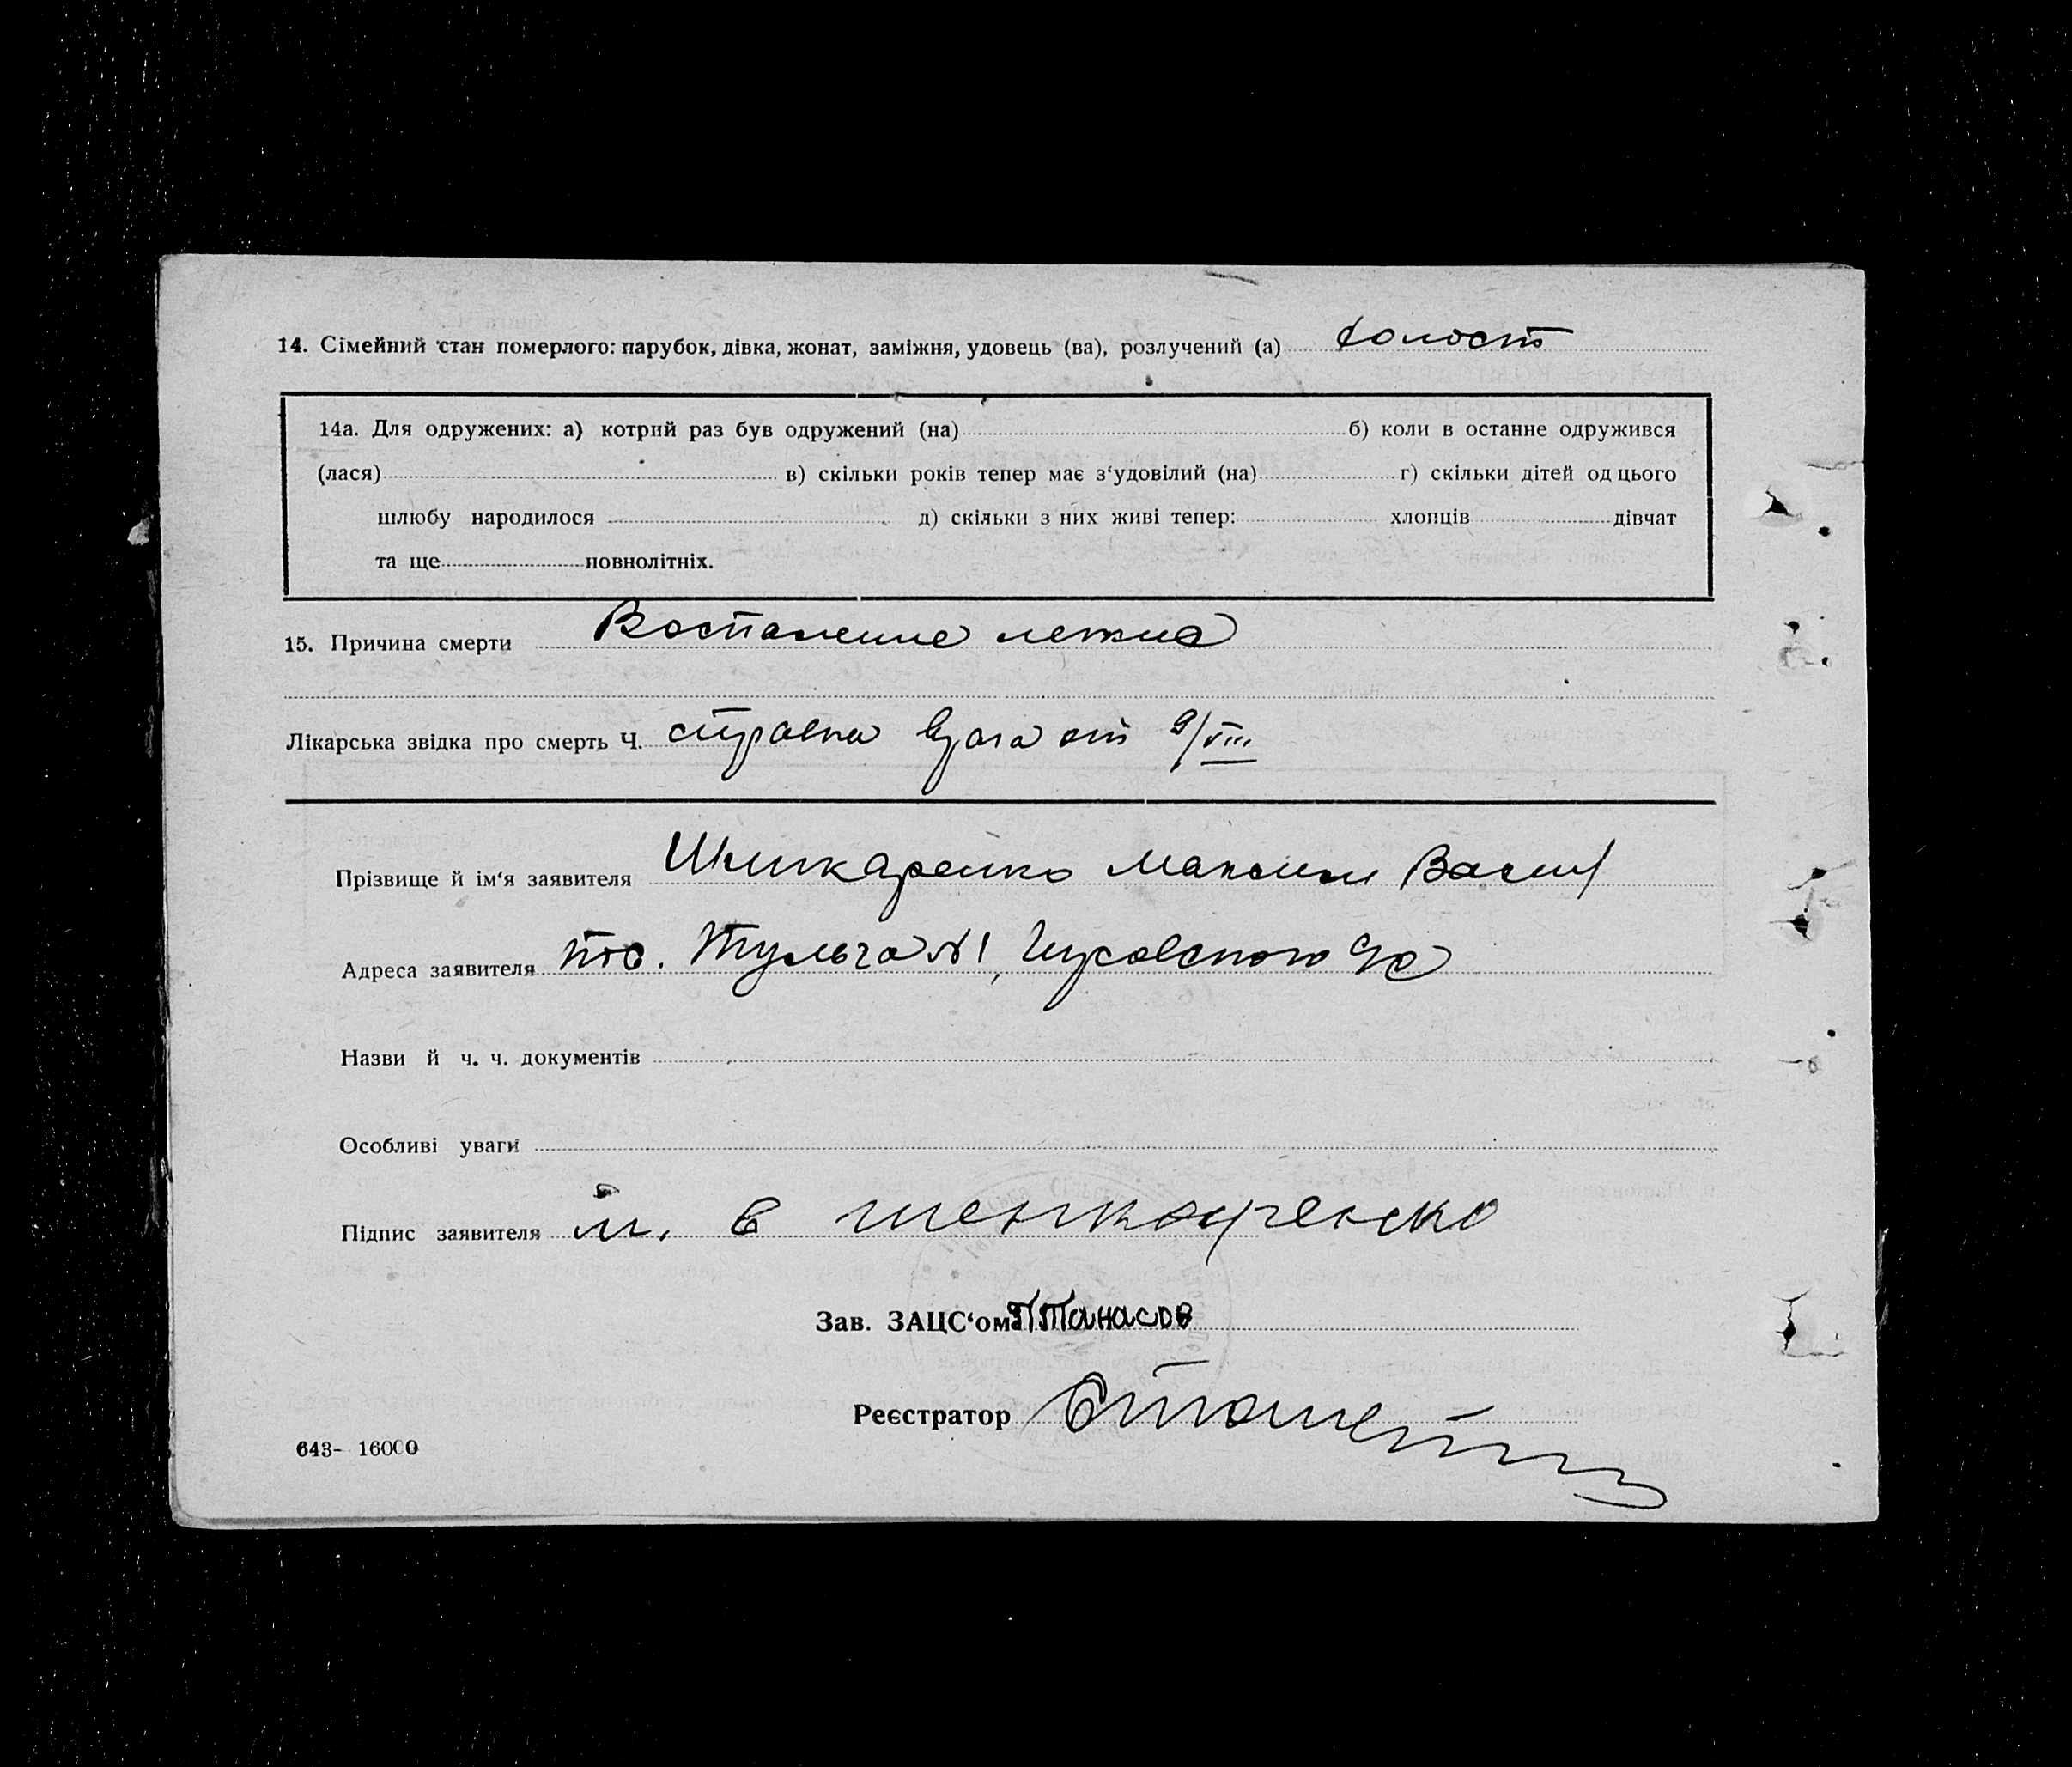 14. Сімейний стан померлого: парубок, дівка, жонат, заміжня, удовець (ва), розлучений (а) холост
14а. Для одружених: а) котрий раз був одружений (на) б) коли в останнє одружився
(лася) в) скільки років тепер має з‘удовілий (на) г) скільки дітей од цього
шлюбу народилося д) скільки з них живі тепер: хлопців дівчат
та ще повнолітніх.
15. Причина смерти Воспаление легких
Лікарська звідка про смерть Ч. справка врача от 9/VIII
Прізвище й ім‘я заявителя Шинкаренко Максим Васил
Адреса заявителя пос. Тульча №1,
Назви й ч. ч. документів
Особливі уваги
Підпис заявителя м. в шенкаренко
Зав. ЗАЦС‘ом Танасов
Реєстратор
643- 16000